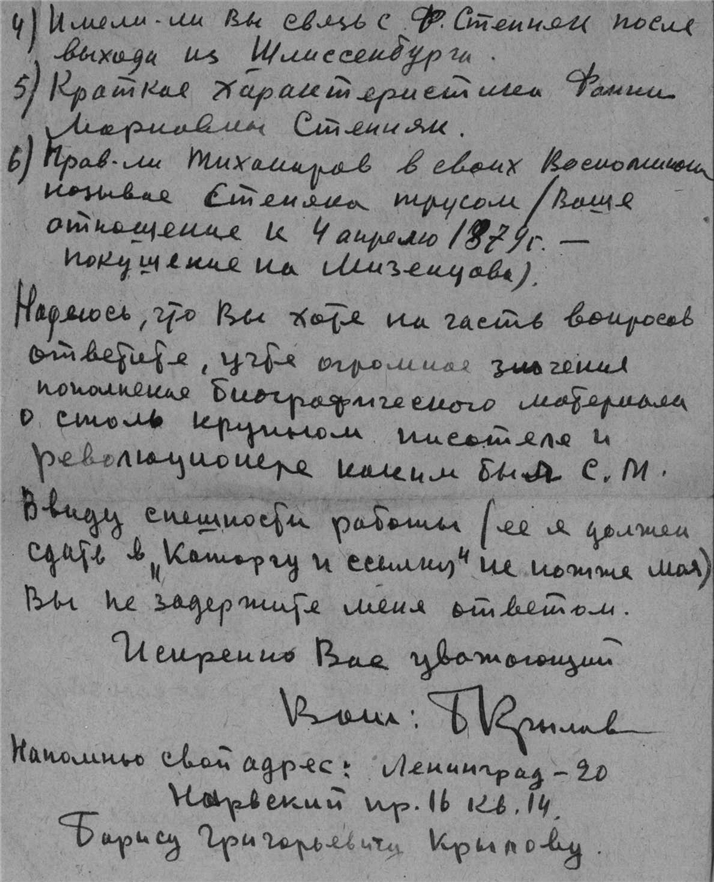 4) Имели-ли Вы связь с Ф. Степняк после
выхода из Шлиссенбурга.
5) Краткая характеристика Фанни
Марковны Степняк.
6) Прав-ли Тихомиров в своих Воспоминан
называя Степняка трусом (Ваше
отношение к 4 апрелю 1879г. —
покушение на Мизенцова).
Надеюсь, что Вы хотя на часть вопросов
ответите, учтя огромное значения
пополнение биографического материала
о столь крупном писателе и
революционере каким был С.М.
Ввиду спешности работы (ее я должен
сдать в „Каторгу и ссылку" не позже мая)
Вы не задержите меня ответом.
Искренно Вас уважающий
Ваш: Б Крылов
Напомню свой адрес: Ленинград-20
Нарвский пр. 16 кв. 14.
Борису Григорьевичу Крылову.